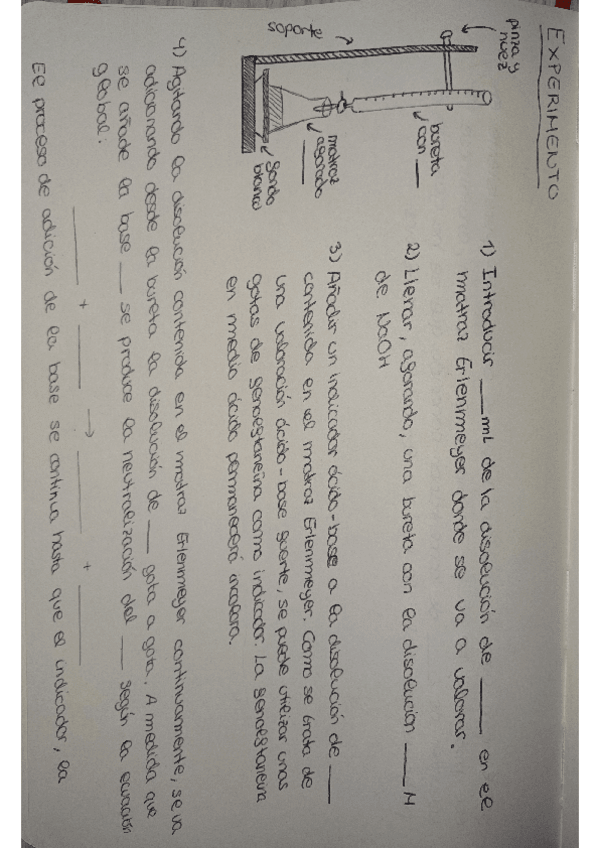 EXPERIMENTO
pinza y
nuez
soporte
bureta
con ___
matraz
aforado
___
fondo
blanco
1) Introducir ___ mL de la disolución de ___ en el
matraz Erlenmeyer donde se va a valorar.
2) Llenar, aforando, una bureta con la disolución ___ M
de NaOH
3) Añadir un indicador ácido-base a la disolución de ___
contenida en el matraz Erlenmeyer. Como se trata de
una valoración ácido-base fuerte, se puede utilizar unas
gotas de fenolftaneína como indicador. La fenolftaneína
en medio ácido permanecerá incolora.
4) Agitando la disolución contenida en el matraz Erlenmeyer continuamente, se va
adicionando desde la bureta la disolución de ___ gota a gota. A medida que
se añade la base ___ se produce la neutralización del ___ según la ecuación
global:
___ + ___ → ___ + ___
El proceso de adición de la base se continua hasta que el indicador, la